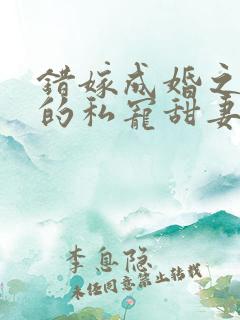 错嫁成婚之
的私宠甜妻
李息隐
未经同意禁止转载